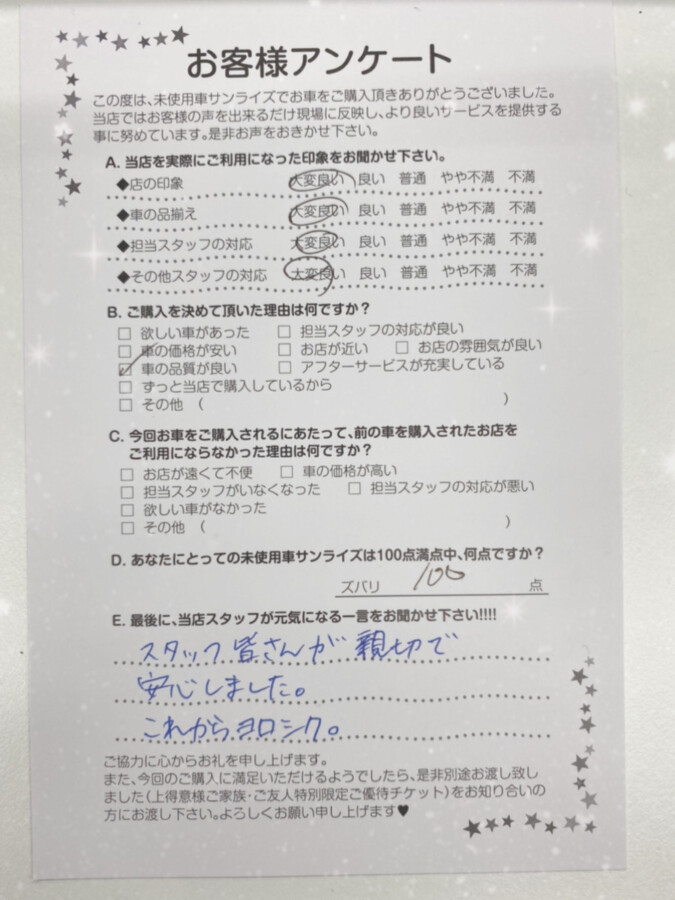 お客様アンケート
この度は、未使用車サンライズでお車をご購入頂きありがとうございました。
当店ではお客様の声を出来るだけ現場に反映し、より良いサービスを提供する
事に努めています。是非お声をおきかせ下さい。
A. 当店を実際にご利用になった印象をお聞かせ下さい。
◆店の印象 大変良い 良い 普通 やや不満 不満
◆車の品揃え 大変良い 良い 普通 やや不満 不満
◆担当スタッフの対応 大変良い 良い 普通 やや不満 不満
◆その他スタッフの対応 大変良い 良い 普通 やや不満 不満
B. ご購入を決めて頂いた理由は何ですか？
□ 欲しい車があった □ 担当スタッフの対応が良い
□ 車の価格が安い □ お店が近い □ お店の雰囲気が良い
☑ 車の品質が良い □ アフターサービスが充実している
□ ずっと当店で購入しているから
□ その他 ( )
C. 今回お車をご購入されるにあたって、前の車を購入されたお店を
ご利用にならなかった理由は何ですか？
□ お店が遠くて不便 □ 車の価格が高い
□ 担当スタッフがいなくなった □ 担当スタッフの対応が悪い
□ 欲しい車がなかった
□ その他 ( )
D. あなたにとっての未使用車サンライズは100点満点中、何点ですか？
ズバリ 100 点
E. 最後に、当店スタッフが元気になる一言をお聞かせ下さい!!!!
スタッフ皆さんが親切で
安心しました。
これからヨロシク。
ご協力に心からお礼を申し上げます。
また、今回のご購入に満足いただけるようでしたら、是非別途お渡し致し
ました(上得意様ご家族・ご友人特別限定ご優待チケット)をお知り合いの
方にお渡し下さい。よろしくお願い申し上げます♥